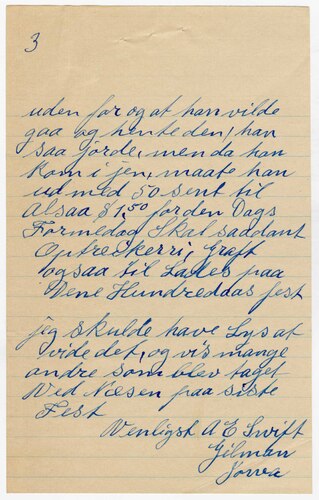 3
uden for og at han vilde
gaa og hente den, han
saa gjorde, men da han
kom i jen, maate han
ud med 50 sent til
Alsaa, $1,50 for den Dags
Formedag Skal saadant
Optreskerri, Graft
ogsaa til Lades paa
Dene Hundreddas fest
jeg skulde have Lys at
vide det, og vis mange
andre som blev taget
Ved Næsen paa siste
Fest
Venligst A E Swift
Gilman
Iowa